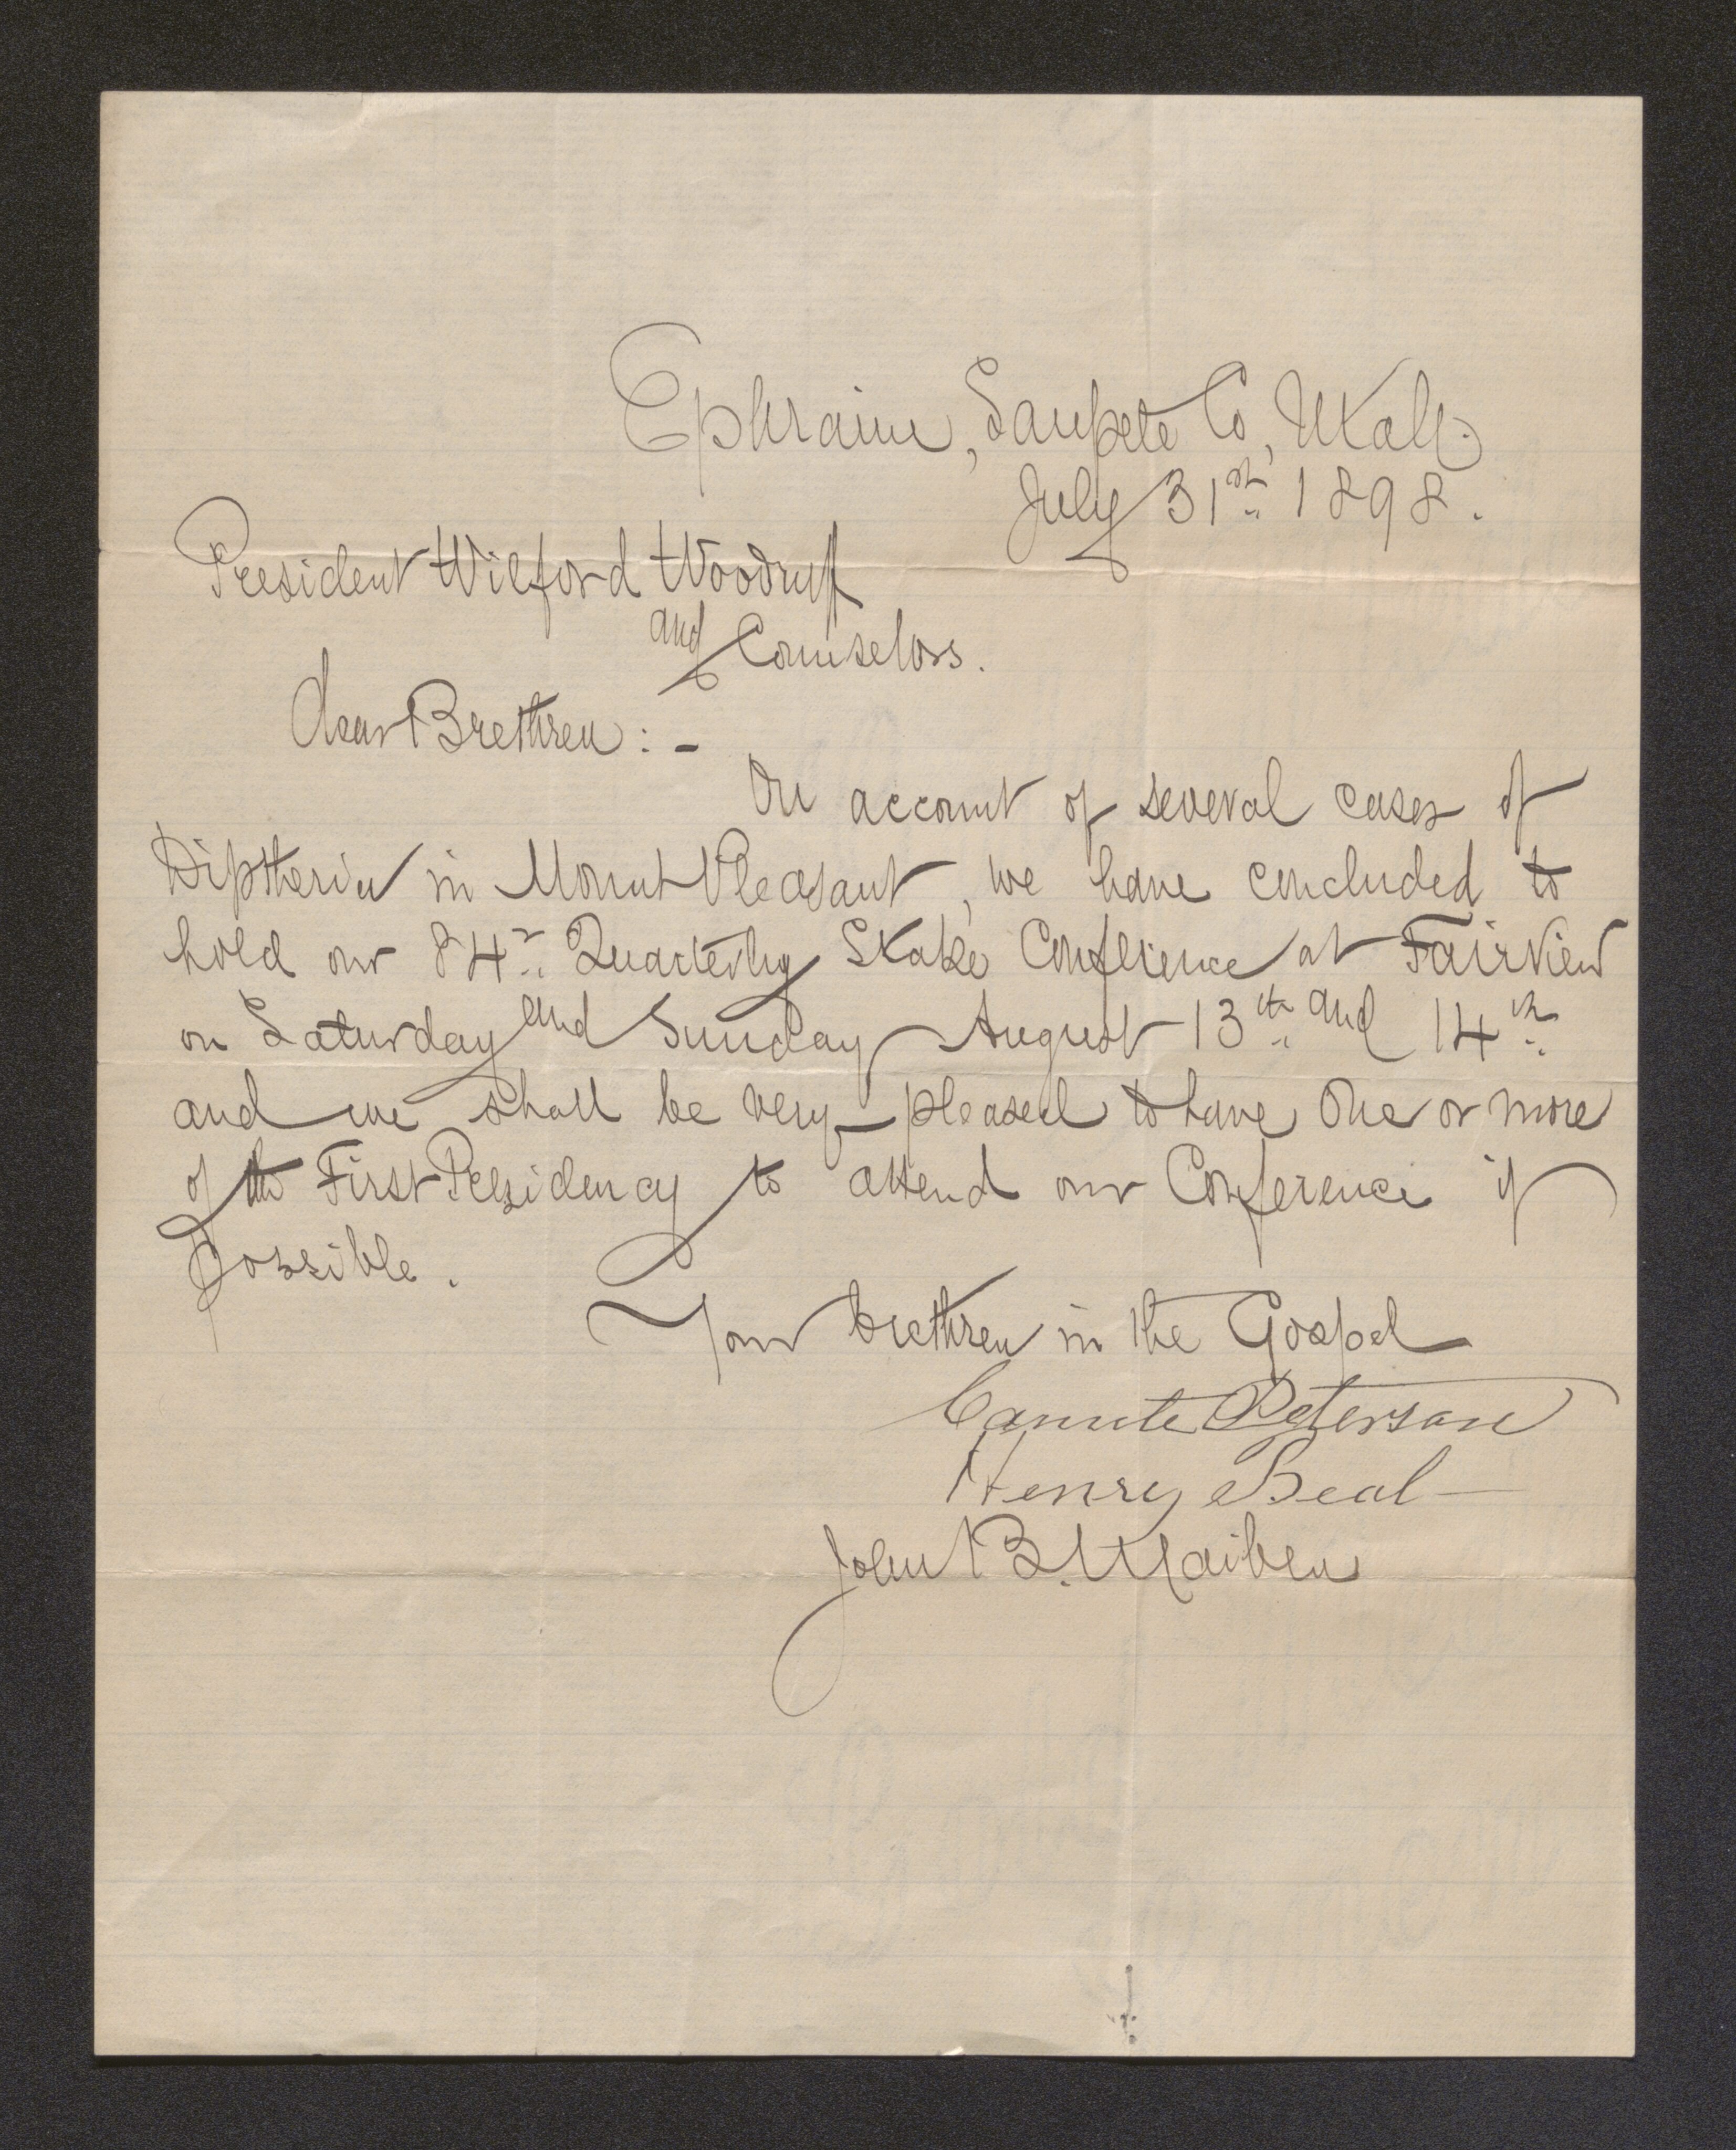 Ephraim, Sanpete Co, Utah.
July 31st 1898.
President Wilford Woodruff
and Counselors.
Dear Brethren: -
On account of several cases of
Diptheria in Mount Pleasant, we have concluded to
hold our 84th Quarterly Stake Conference at Fairview
on Saturday and Sunday August 13th and 14th
and we shall be very pleased to have One or more
of the First Presidency to attend our Conference if
possible.
Your brethren in the Gospel
Canute Peterson
Henry Beal
John B. Maiben